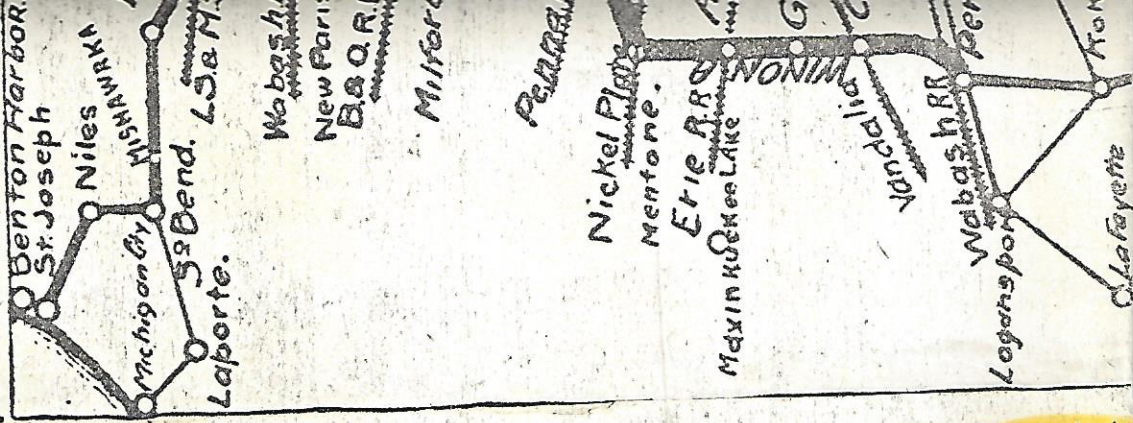 Benton Harbor.
St. Joseph
Niles
MISHAWAKA
Michigan City
So Bend.
Laporte.
L.S.& M.
Wabash.
New Paris
B.& O.R.
Milford
Penna
Nickel Pl
Mentone.
Erie R.R.
MaxinKuckee LAKE
WINONA
G
Vandalia
Wabash RR
Logansport
Lafayette
Kok